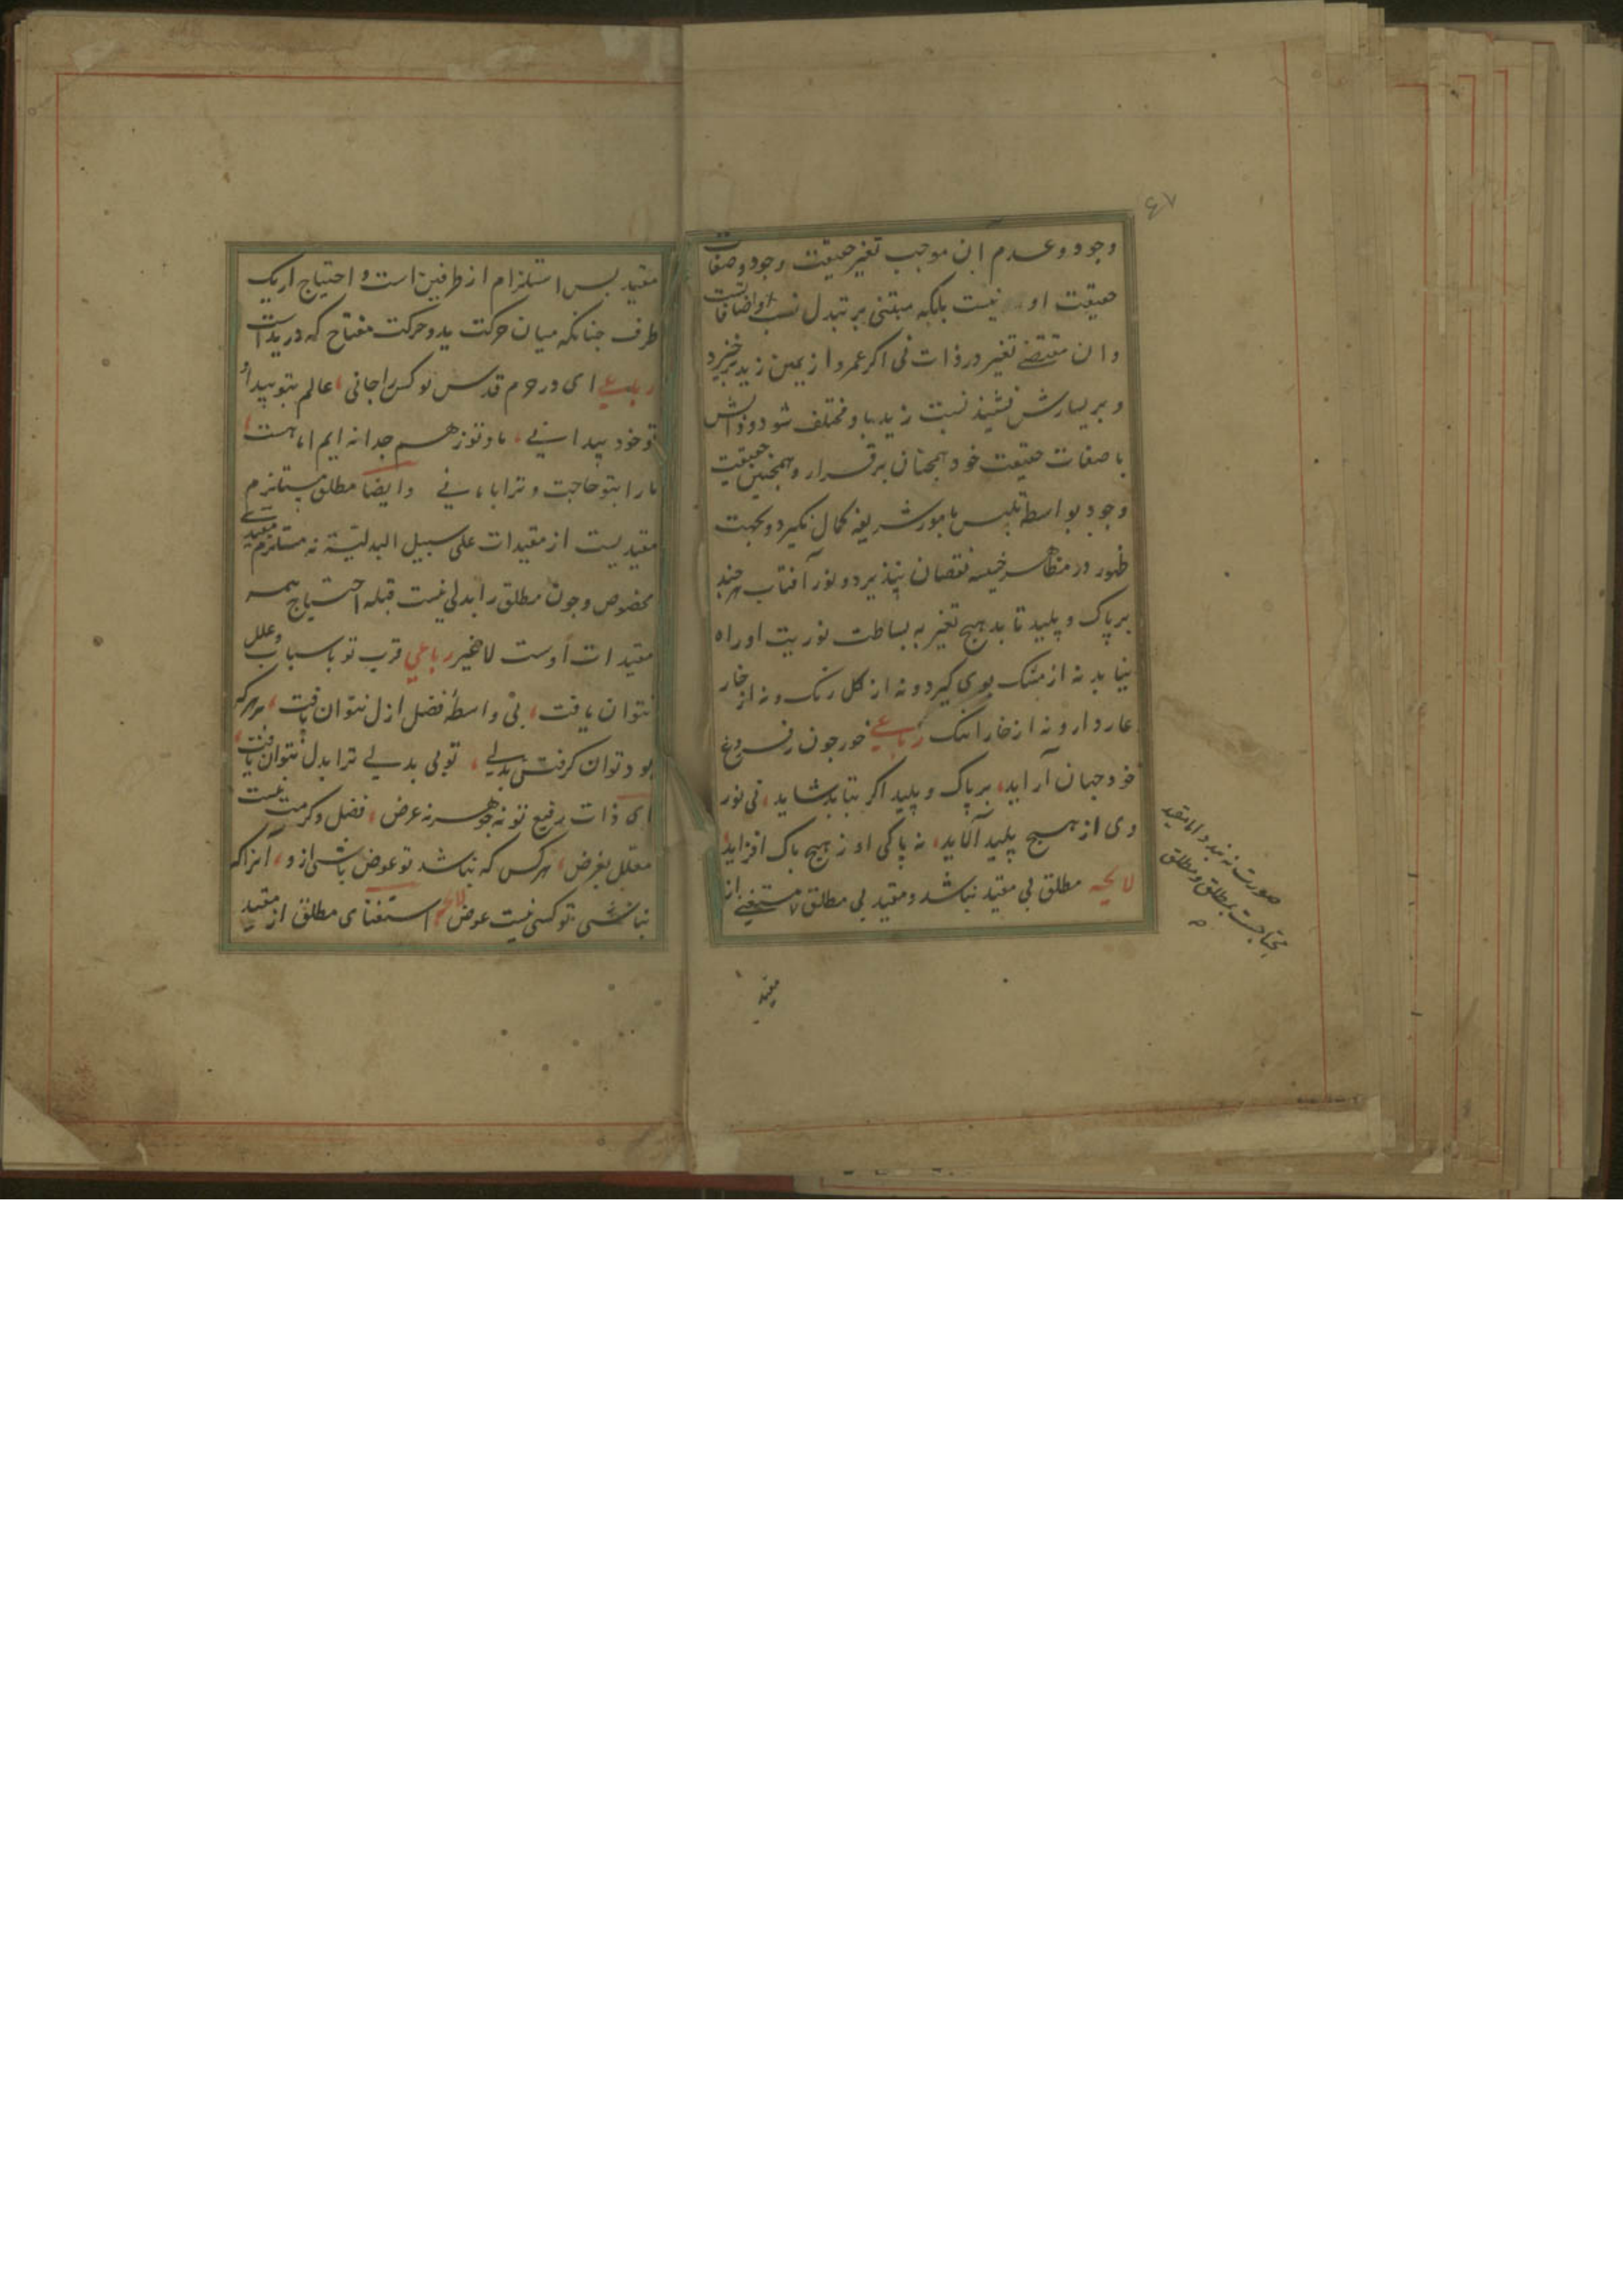 ۶۷
وجود و عدم این موجب تغیر حقیقت وجود و صفات
حقیقت او نیست بلکه مبتنی بر تبدل نسب و اضافاتست
و ان مقتضی تغیر در ذات نی اکر عمرو از یمین زید برخیزد
و بر یسارش نشیند نسبت زید با و مختلف شود و ذاتش
با صفات حقیقت خود همچنان برقرار و همچنین حقیقت
وجود بواسطه تلبس بامور شریفه کمال نگیرد و بجهت
ظهور در مظاهر خسیسه نقصان نپذیرد و نور آفتاب هر چند
بر پاک و پلید تابد هیچ تغیر به بساطت نوریت او راه
نیابد نه از مشک بوی گیرد و نه از کل رنک و نه از خار
عار دارد و نه از خارا ننک رباعی خور چون ز فروغ
خود جهان آراید، بر پاک و پلید اکر بتابد شاید، نی نور
وی از هیچ پلید آلاید، نه پاکی او ز هیچ پاک افزاید
لایحه مطلق بی مقید نباشد و مقید بی مطلق مستغنی از
صورت نه بندد اما مقید
محتاجست بمطلق و مطلق
مقید
مقید بس استلزام از طرفین است و احتیاج از یک
طرف جنانکه میان حرکت ید و حرکت مفتاح که در ید است
رباعی ای در حرم قدس تو کس را جانی، عالم بتو پیدا و
تو خود پیدا نی، ما و تو ز هم جدا نه ایم اما هست،
ما را بتو حاجت و ترا با ما نی وایضا مطلق مستلزم
مقیدیست از مقیدات علی سبیل البدلیة نه مستلزم مقیدی
مخصوص وجون مطلق را بدلی نیست قبله احتیاج همه
مقیدات اوست لا غیر رباعی قرب تو باسباب و علل
نتوان یافت، بی واسطهٔ فضل ازل نتوان یافت، بر هر که
بود توان کرفتن بدلی، تو بی بدلی ترا بدل نتوان یافت،
ای ذات رفیع تو نه جوهر نه عرض، فضل و کرمت نیست
معلل بغرض، هر کس که نباشد تو عوض باشی از و، آنرا که
نباشی تو کسی نیست عوض لایحه استغنای مطلق از مقید